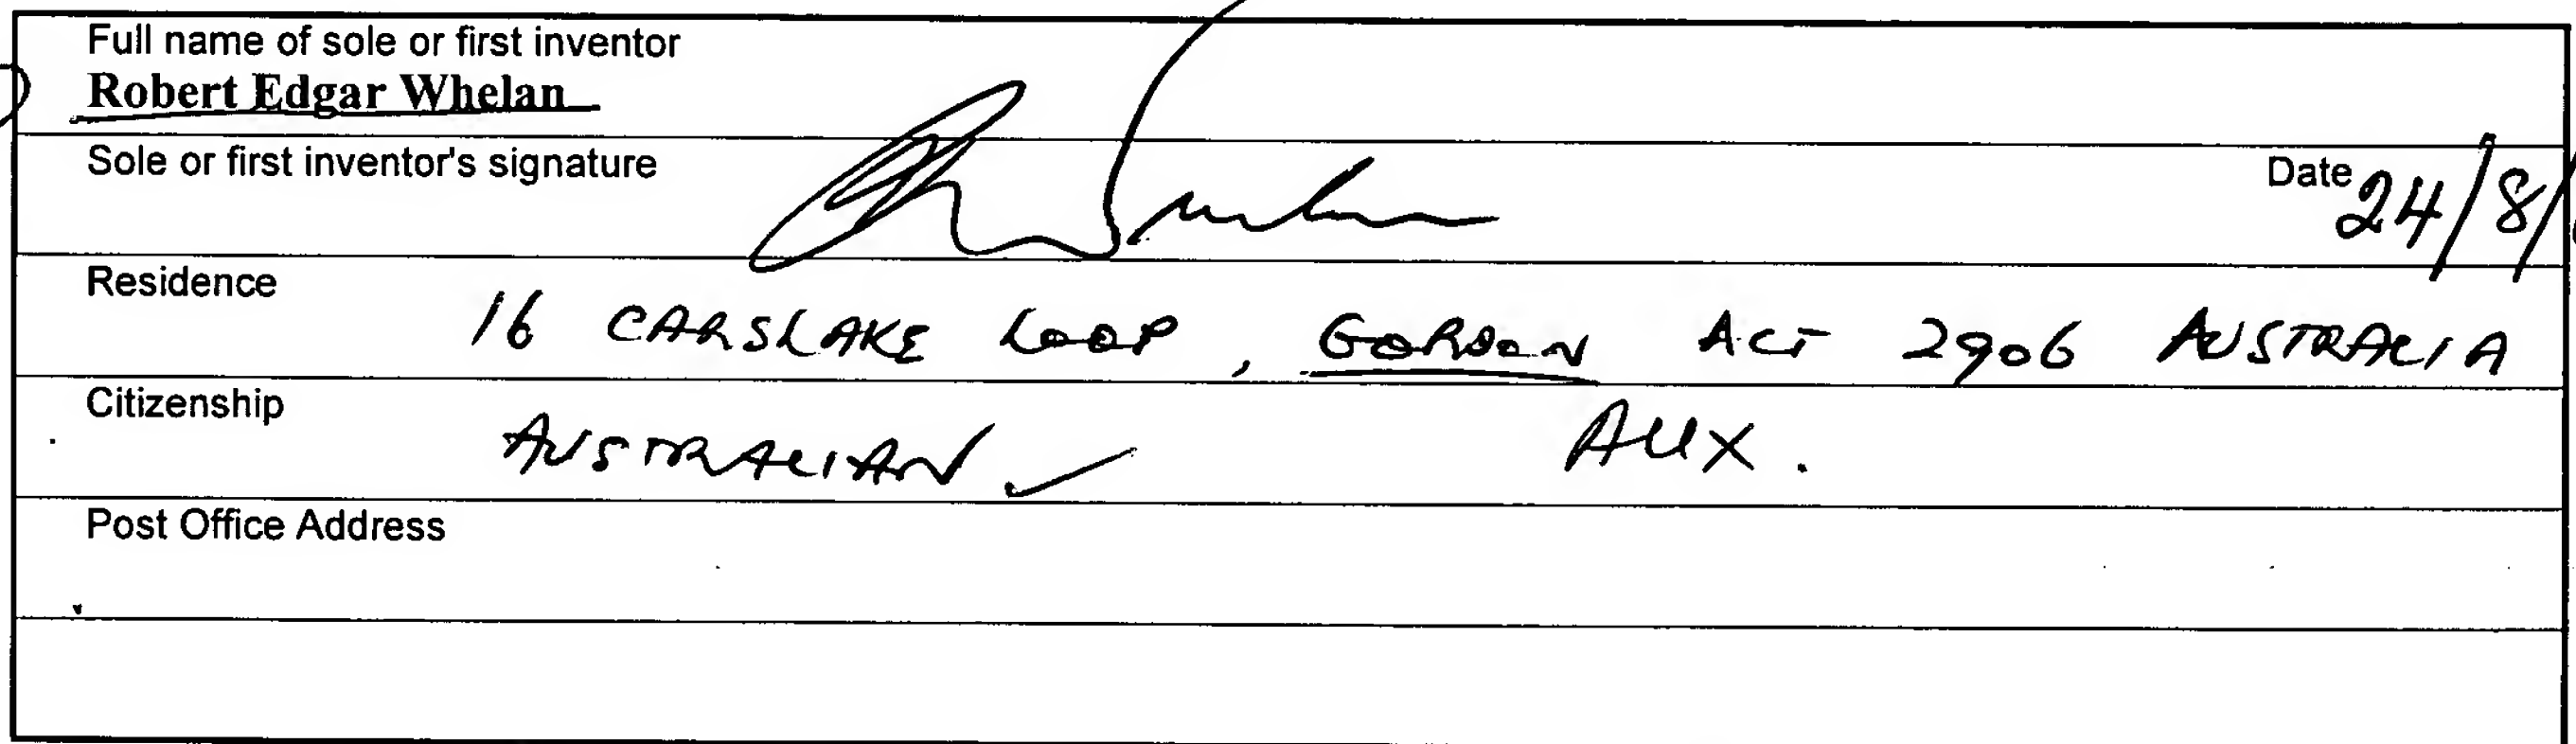 Full name of sole or first inventor
Robert Edgar Whelan
Sole or first inventor's signature
Date 24/8/
Residence
16 CARSLAKE LOOP, GORDON ACT 2906 AUSTRALIA
Citizenship
AUSTRALIAN ✓ AUX.
Post Office Address